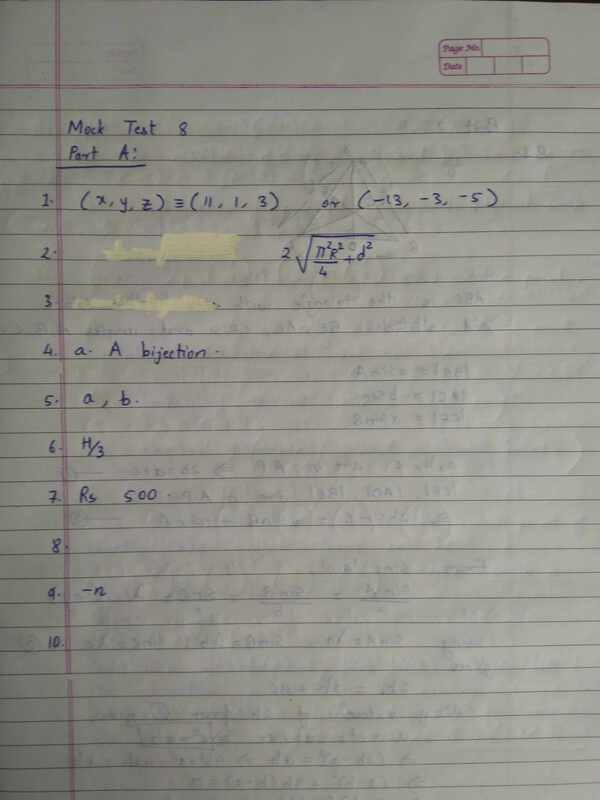 Page No.
Date
Mock Test 8
Part A:
1. (x, y, z) ≡ (11, 1, 3) or (-13, -3, -5)
2. 2√(π²R²/4 + d²)
3.
4. a. A bijection.
5. a, b.
6. H/3
7. Rs 500.
8.
9. -n
10.